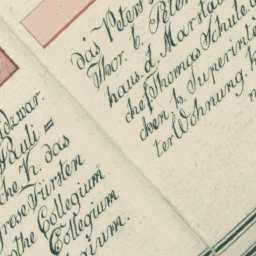 das Peters
Thor. b. Peter
haus. d. Marstal
che Thomas Schule.
ken k. Superinte
ter Wohnung.
idzwar.
Pauli =
che h. das
grose Fürsten
rothe Collegium
Collegium
gium.